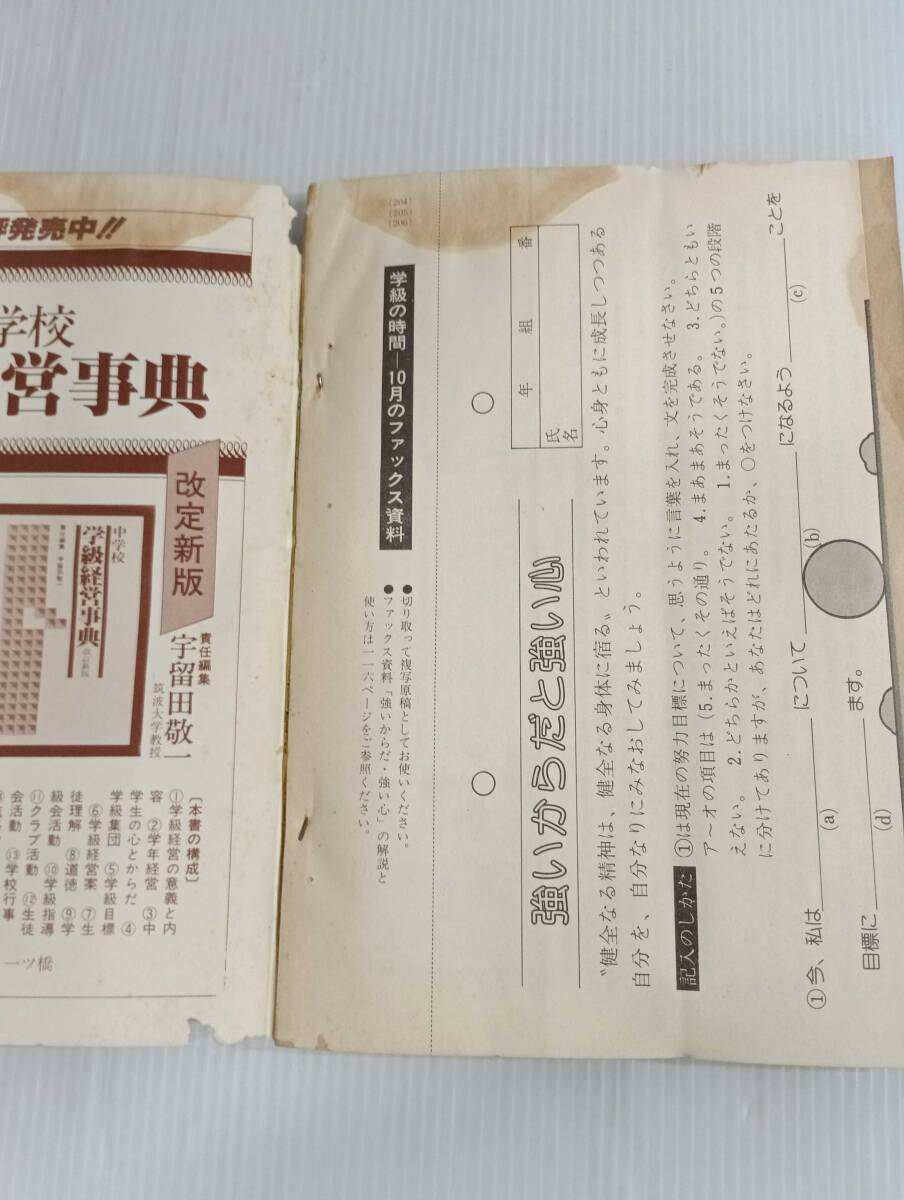 評発売中!!
学校
営事典
改定新版
中学校
学級経営事典
改訂新版
責任編集
宇留田敬一
筑波大学教授
〔本書の構成〕
①学級経営の意義と内
容 ②学年経営 ③中
学生の心とからだ ④
学級集団 ⑤学級目標
⑥学級経営案 ⑦生
徒理解 ⑧道徳 ⑨学
級会活動 ⑩学級指導
⑪クラブ活動 ⑫生徒
会活動 ⑬学校行事
一ツ橋
(204)
(205)
(206)
学級の時間―10月のファックス資料
●切り取って複写原稿としてお使いください。
●ファックス資料「強いからだ・強い心」の解説と
使い方は一一六ページをご参照ください。
年 組 番
氏名
強いからだと強い心
〝健全なる精神は、健全なる身体に宿る〟といわれています。心身ともに成長しつつある
自分を、自分なりにみなおしてみましょう。
記入のしかた ①は現在の努力目標について、思うように言葉を入れ、文を完成させなさい。
ア～オの項目は(5.まったくその通り。 4.まあまあそうである。 3.どちらともい
えない。 2.どちらかといえばそうでない。 1.まったくそうでない。)の5つの段階
に分けてありますが、あなたはどれにあたるか、○をつけなさい。
①今、私は について になるよう ことを
(a) (b) (c)
目標に ます。
(d)